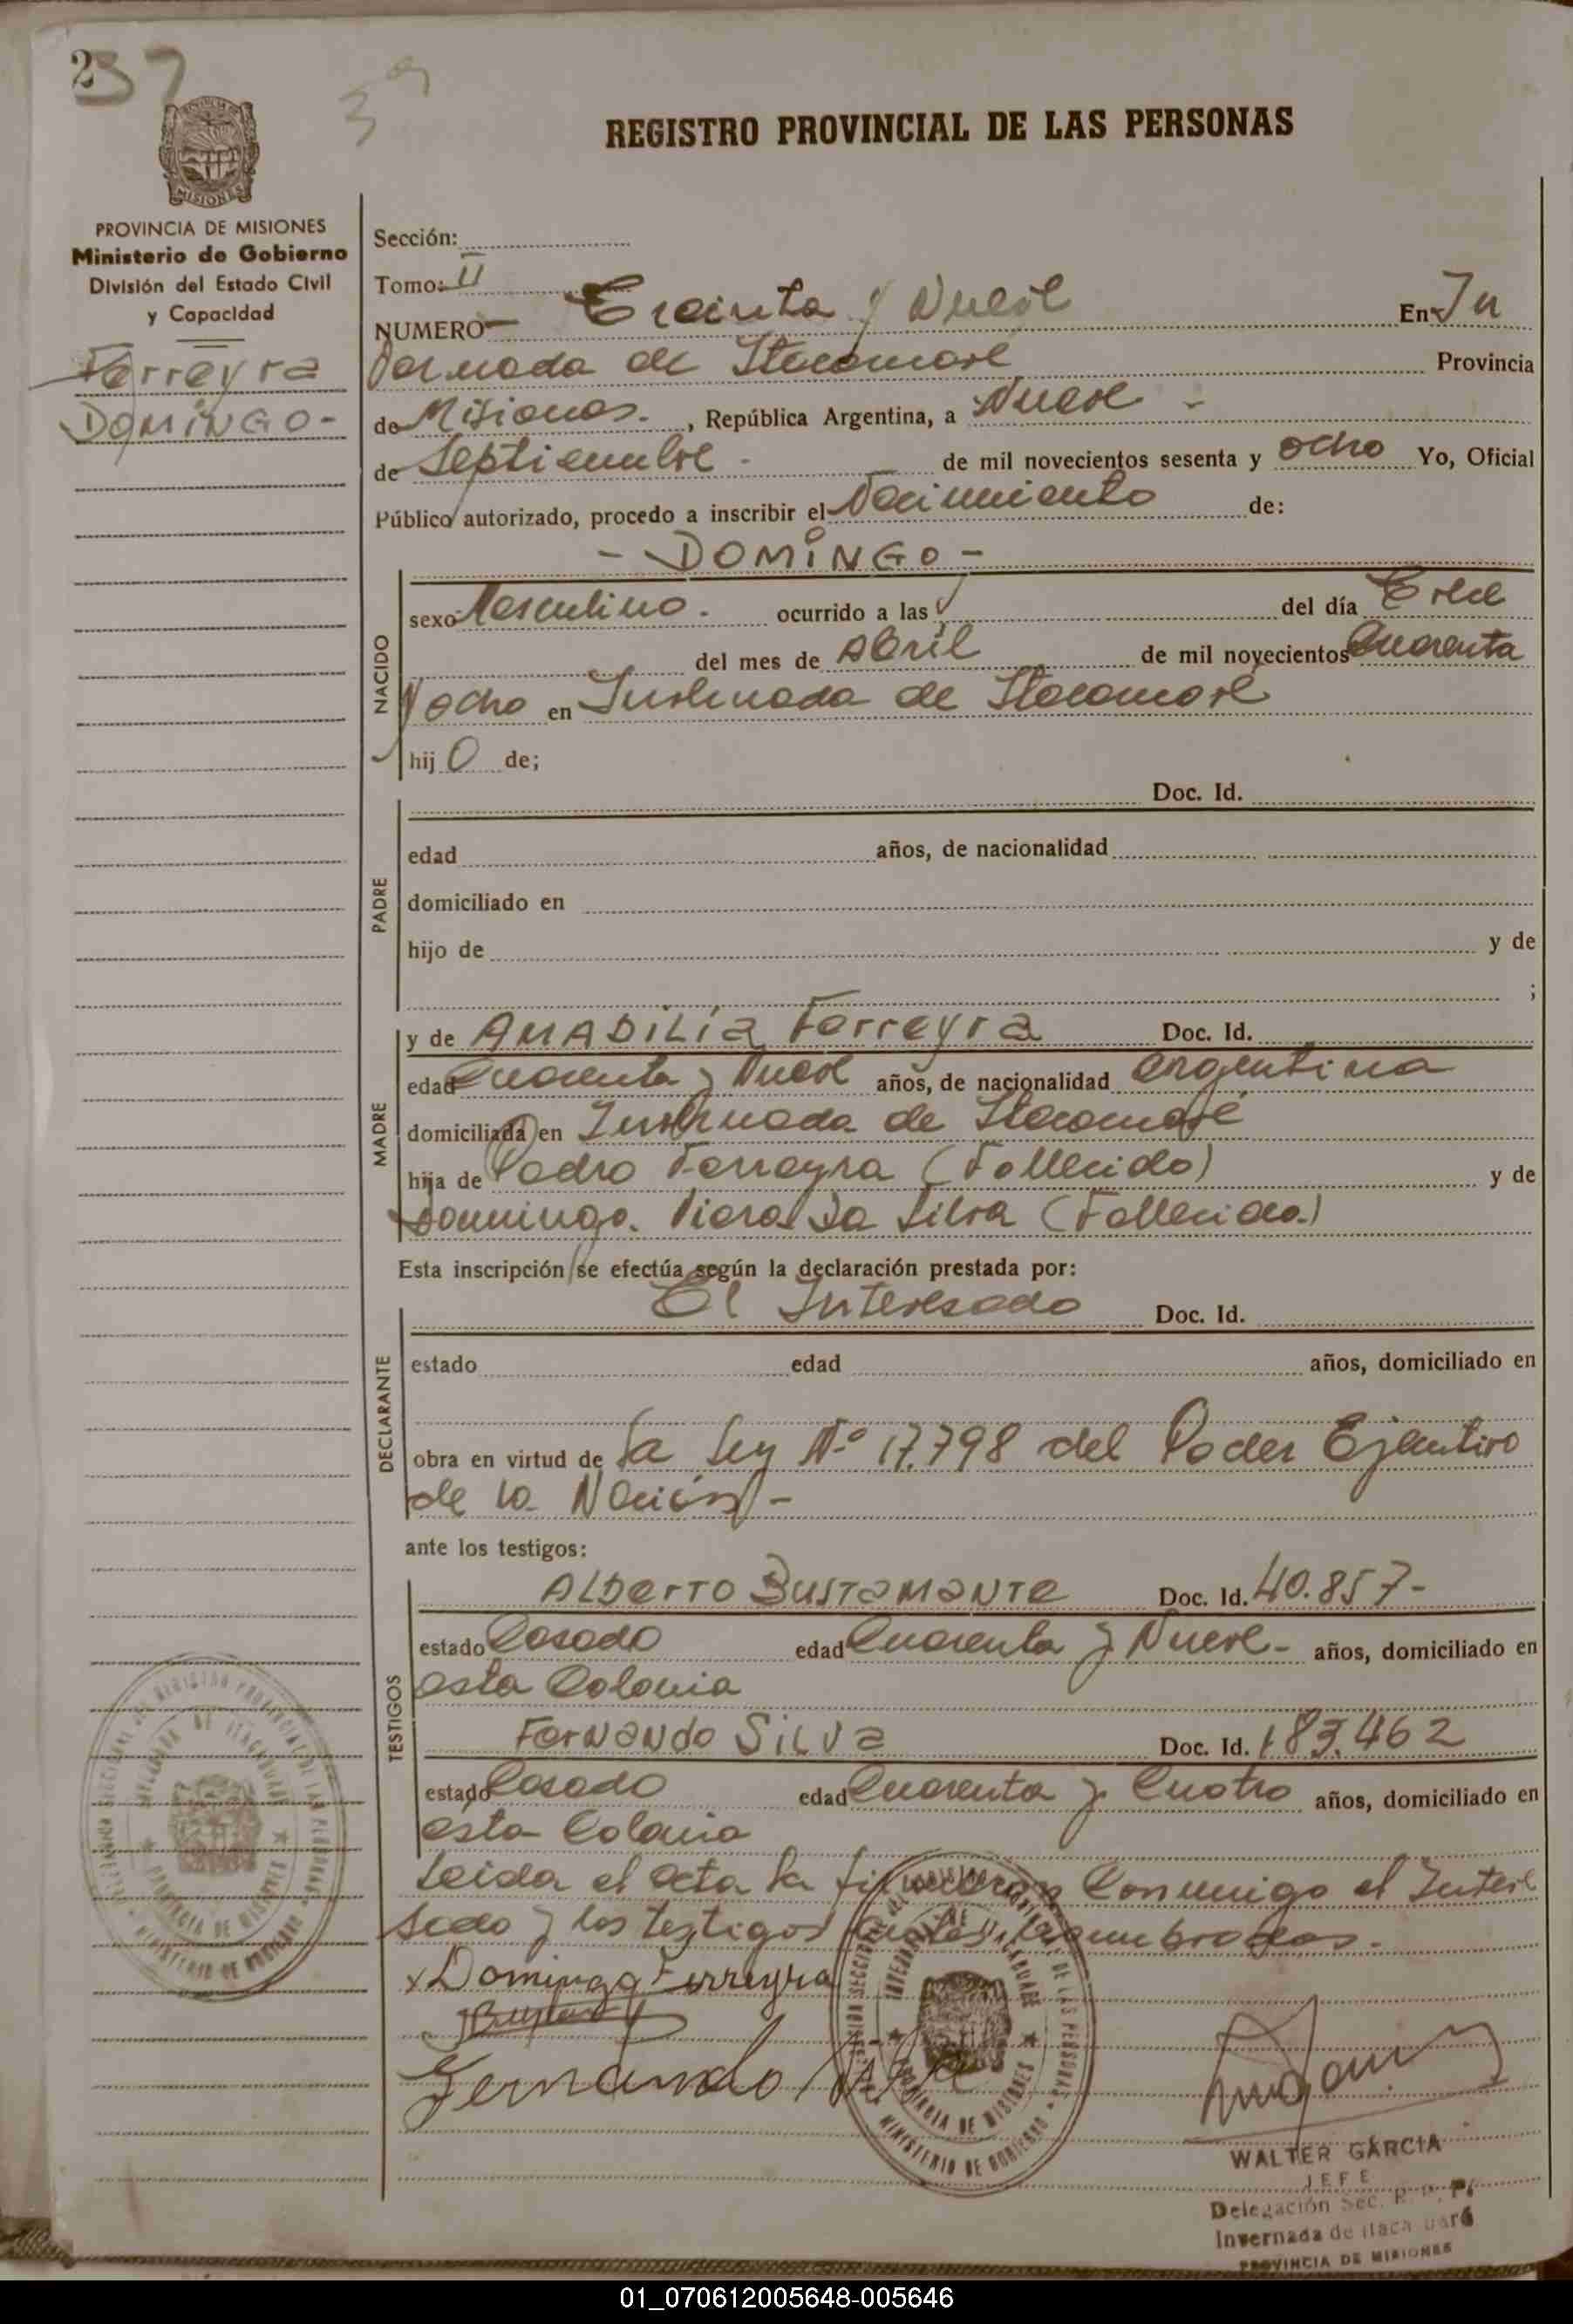 237
39
REGISTRO PROVINCIAL DE LAS PERSONAS
MISIONES
PROVINCIA DE MISIONES
Ministerio de Gobierno
División del Estado Civil
y Capacidad
Ferreyra
DOMINGO-
Sección:
Tomo: II
NUMERO Treinta y Nueve En In
vernada de Itacaruaré Provincia
de Misiones. , República Argentina, a Nueve -
de Septiembre - de mil novecientos sesenta y ocho Yo, Oficial
Público autorizado, procedo a inscribir el Nacimiento de:
- DOMINGO -
NACIDO
sexo Masculino. ocurrido a las del día Trece
del mes de Abril de mil novecientos Cuarenta
y ocho en Invernada de Itacaruaré
hijo de;
PADRE
Doc. Id.
edad años, de nacionalidad
domiciliado en
hijo de y de
;
MADRE
y de AMADILIA Ferreyra Doc. Id.
edad Cuarenta y Nueve años, de nacionalidad argentina
domiciliada en Invernada de Itacaruaré
hija de Pedro Ferreyra (Fallecido) y de
Dominga Da Silva (Fallecida.)
Esta inscripción se efectúa según la declaración prestada por:
DECLARANTE
El Interesado Doc. Id.
estado edad años, domiciliado en
obra en virtud de La Ley Nº 17.798 del Poder Ejecutivo
de la Nación -
ante los testigos:
TESTIGOS
ALBerTO BUSTaMaNTe Doc. Id. 40.857-
estado Casado edad Cuarenta y Nueve - años, domiciliado en
esta Colonia
FerNaNdo SiLVa Doc. Id. 183.462
estado Casado edad Cuarenta y Cuatro años, domiciliado en
esta Colonia
Leida el acta la firmaron Conmigo el Intere
sado y los testigos nombrados.
x Domingo Ferreyra
Fernando
WALTER GARCIA
JEFE
Delegación Sec. R. P. P.
Invernada de Itacaruaré
PROVINCIA DE MISIONES
01_070612005648-005646